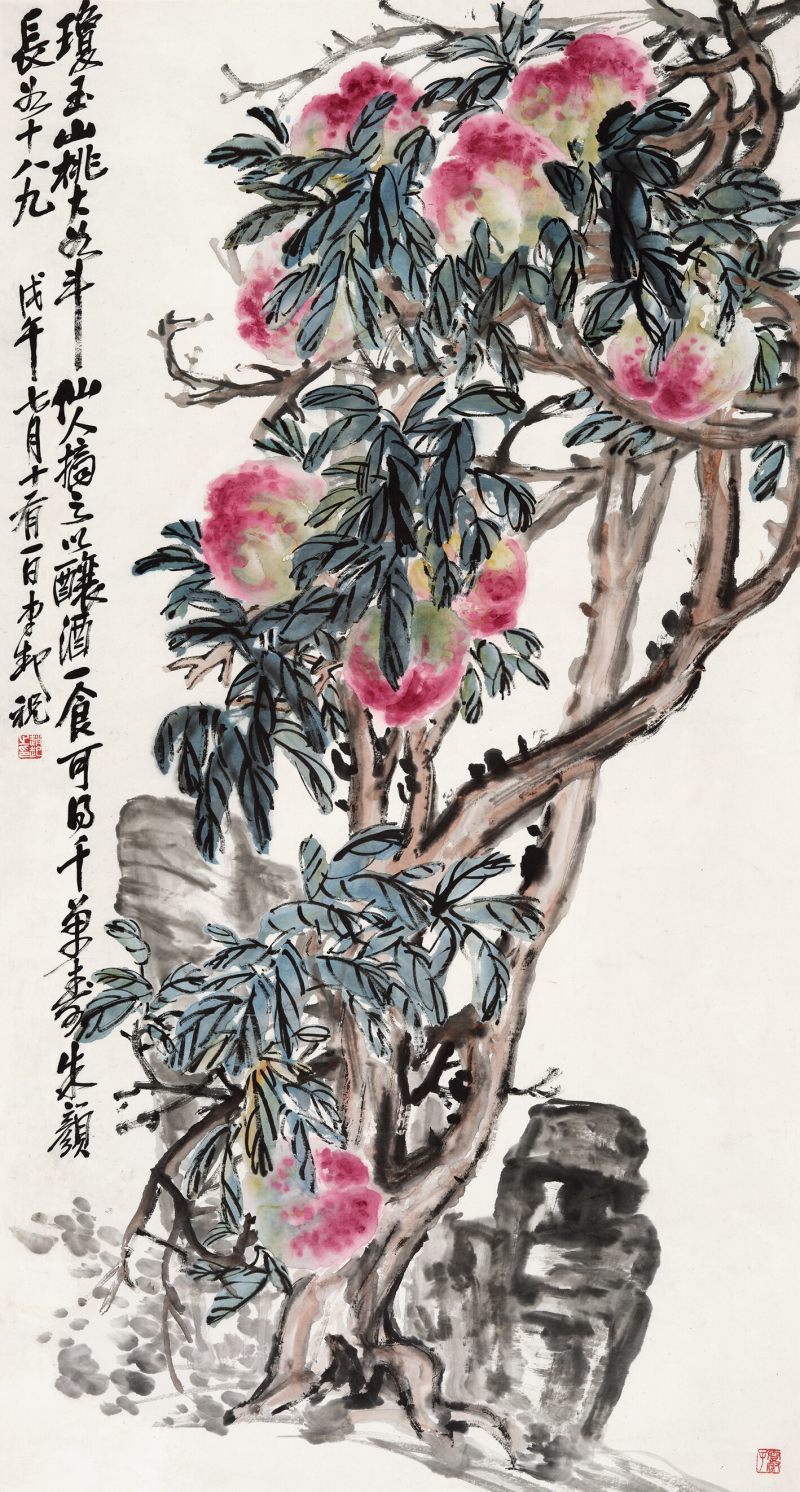 瓊玉山桃大如斗仙人摘之以釀酒一食可得千萬壽朱顏
長如十八九 戊午七月十有一日李 祝